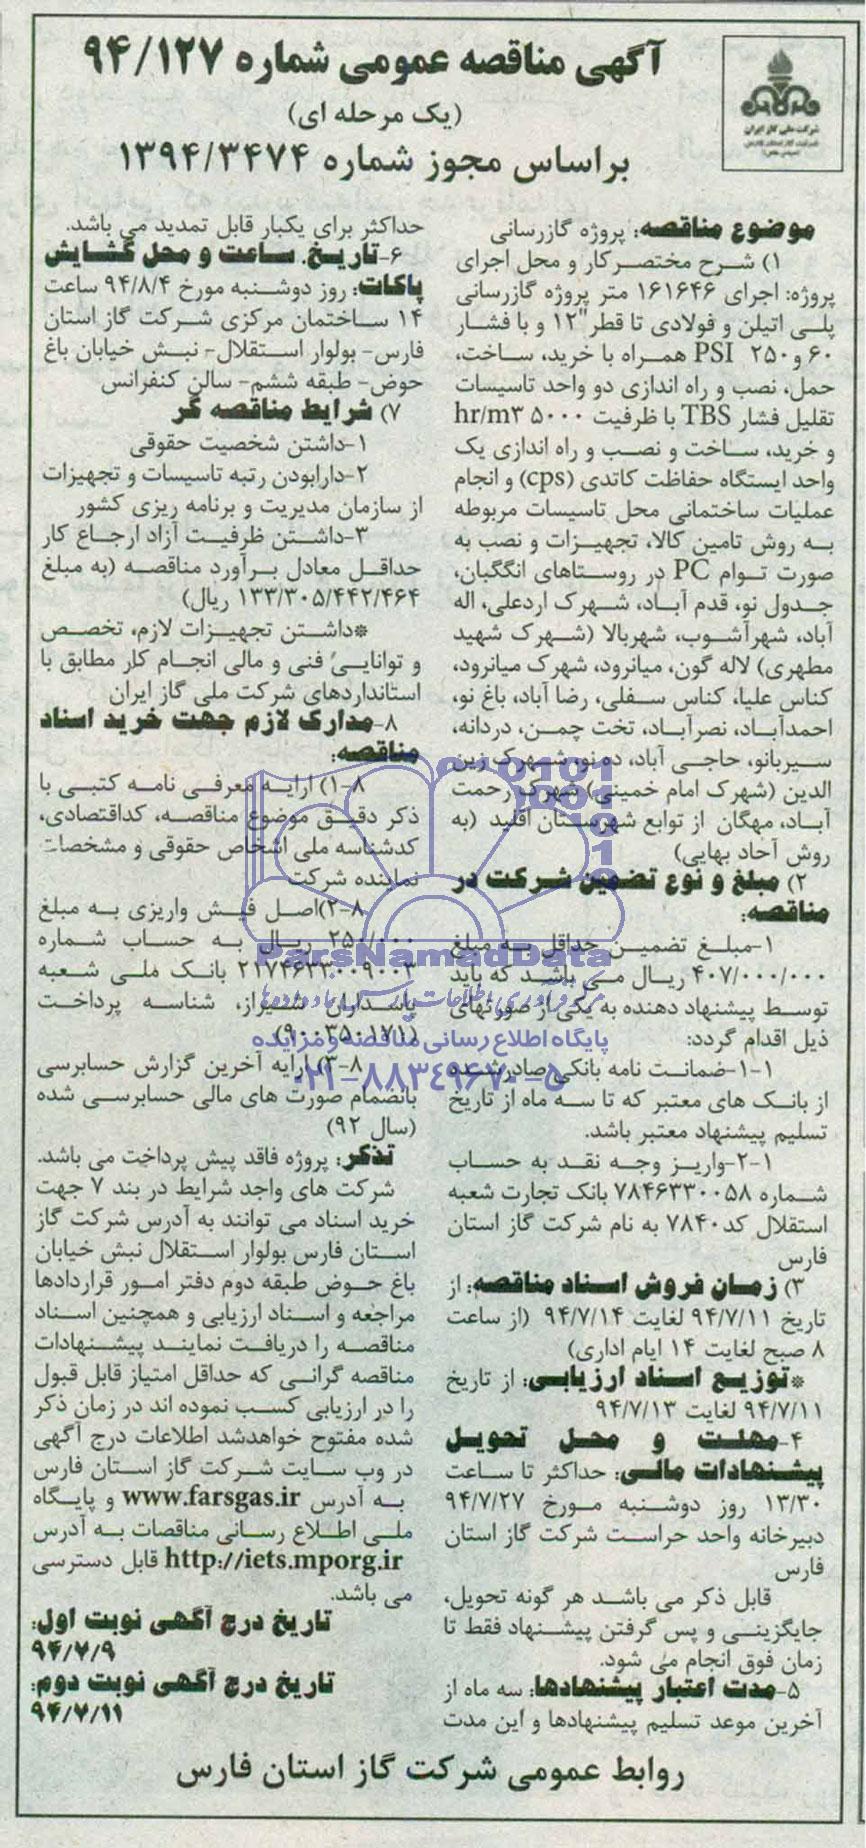 آگهی مناقصه عمومی شماره ۹۴/۱۲۷
(یک مرحله ای)
براساس مجوز شماره ۱۳۹۴/۳۴۷۴
شرکت ملی گاز ایران
شرکت گاز استان فارس
(سهامی خاص)
موضوع مناقصه: پروژه گازرسانی
۱) شرح مختصرکار و محل اجرای
پروژه: اجرای ۱۶۱۶۴۶ متر پروژه گازرسانی
پلی اتیلن و فولادی تا قطر"۱۲ و با فشار
۶۰ و ۲۵۰ PSI همراه با خرید، ساخت،
حمل، نصب و راه اندازی دو واحد تاسیسات
تقلیل فشار TBS با ظرفیت ۵۰۰۰ hr/m۳
و خرید، ساخت و نصب و راه اندازی یک
واحد ایستگاه حفاظت کاتدی (cps) و انجام
عملیات ساختمانی محل تاسیسات مربوطه
به روش تامین کالا، تجهیزات و نصب به
صورت توام PC در روستاهای انگگبان،
جدول نو، قدم آباد، شهرک اردعلی، اله
آباد، شهرآشوب، شهربالا (شهرک شهید
مطهری) لاله گون، میانرود، شهرک میانرود،
کناس علیا، کناس سفلی، رضا آباد، باغ نو،
احمدآباد، نصرآباد، تخت چمن، دردانه،
سیربانو، حاجی آباد، ده نو، شهرک زین
الدین (شهرک امام خمینی) شهرک رحمت
آباد، مهگان از توابع شهرستان اقلید (به
روش آحاد بهایی)
۲) مبلغ و نوع تضمین شرکت در
مناقصه:
۱-مبلغ تضمین حداقل به مبلغ
۴۰۷/۰۰۰/۰۰۰ ریال می باشد که باید
توسط پیشنهاد دهنده به یکی از صورتهای
ذیل اقدام گردد:
۱-۱-ضمانت نامه بانکی صادرشده
از بانک های معتبر که تا سه ماه از تاریخ
تسلیم پیشنهاد معتبر باشد.
۱-۲-واریز وجه نقد به حساب
شماره ۷۸۴۶۳۳۰۰۵۸ بانک تجارت شعبه
استقلال کد ۷۸۴۰ به نام شرکت گاز استان
فارس
۳) زمان فروش اسناد مناقصه: از
تاریخ ۹۴/۷/۱۱ لغایت ۹۴/۷/۱۴ (از ساعت
۸ صبح لغایت ۱۴ ایام اداری)
*توزیع اسناد ارزیابی: از تاریخ
۹۴/۷/۱۱ لغایت ۹۴/۷/۱۳
۴-مهلت و محل تحویل
پیشنهادات مالی: حداکثر تا ساعت
۱۳/۳۰ روز دوشنبه مورخ ۹۴/۷/۲۷
دبیرخانه واحد حراست شرکت گاز استان
فارس
قابل ذکر می باشد هر گونه تحویل،
جایگزینی و پس گرفتن پیشنهاد فقط تا
زمان فوق انجام می شود.
۵-مدت اعتبار پیشنهادها: سه ماه از
آخرین موعد تسلیم پیشنهادها و این مدت
حداکثر برای یکبار قابل تمدید می باشد.
۶-تاریخ، ساعت و محل گشایش
پاکات: روز دوشنبه مورخ ۹۴/۸/۴ ساعت
۱۴ ساختمان مرکزی شرکت گاز استان
فارس- بولوار استقلال- نبش خیابان باغ
حوض- طبقه ششم- سالن کنفرانس
۷) شرایط مناقصه گر
۱-داشتن شخصیت حقوقی
۲-دارابودن رتبه تاسیسات و تجهیزات
از سازمان مدیریت و برنامه ریزی کشور
۳-داشتن ظرفیت آزاد ارجاع کار
حداقل معادل برآورد مناقصه (به مبلغ
۱۳۳/۳۰۵/۴۴۲/۴۶۴ ریال)
*داشتن تجهیزات لازم، تخصص
و توانایی فنی و مالی انجام کار مطابق با
استانداردهای شرکت ملی گاز ایران
۸-مدارک لازم جهت خرید اسناد
مناقصه:
۸-۱) ارایه معرفی نامه کتبی با
ذکر دقیق موضوع مناقصه، کداقتصادی،
کدشناسه ملی اشخاص حقوقی و مشخصات
نماینده شرکت
۸-۲)اصل فیش واریزی به مبلغ
۲۵۰/۰۰۰ ریال به حساب شماره
۲۱۷۴۶۳۳۰۰۹۰۰۳ بانک ملی شعبه
پاسداران شیراز، شناسه پرداخت
(۹۰۰۳۵۰۱۷۱)
۸-۳) ارایه آخرین گزارش حسابرسی
بانضمام صورت های مالی حسابرسی شده
(سال ۹۲)
تذکر: پروژه فاقد پیش پرداخت می باشد.
شرکت های واجد شرایط در بند ۷ جهت
خرید اسناد می توانند به آدرس شرکت گاز
استان فارس بولوار استقلال نبش خیابان
باغ حوض طبقه دوم دفتر امور قراردادها
مراجعه و اسناد ارزیابی و همچنین اسناد
مناقصه را دریافت نمایند پیشنهادات
مناقصه گرانی که حداقل امتیاز قابل قبول
را در ارزیابی کسب نموده اند در زمان ذکر
شده مفتوح خواهدشد اطلاعات درج آگهی
در وب سایت شرکت گاز استان فارس
به آدرس www.farsgas.ir و پایگاه
ملی اطلاع رسانی مناقصات به آدرس
http://iets.mporg.ir قابل دسترسی
می باشد.
تاریخ درج آگهی نوبت اول:
۹۴/۷/۹
تاریخ درج آگهی نوبت دوم:
۹۴/۷/۱۱
روابط عمومی شرکت گاز استان فارس
ParsNamadData
مرکز فرآوری اطلاعات پارس نماد داده ها
پایگاه اطلاع رسانی مناقصه و مزایده
۰۲۱-۸۸۳۴۹۶۷۰-۵